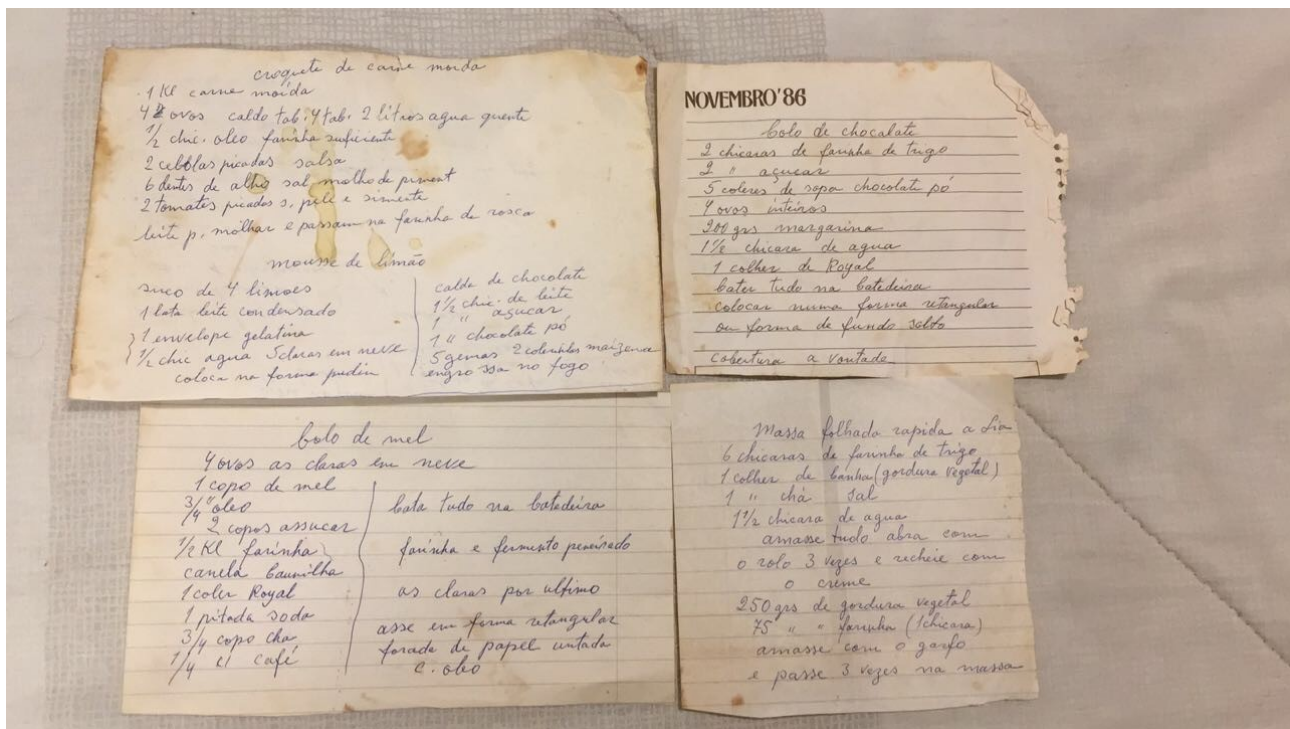 croquete de carne moida
1 Kl carne moída
4 ovos caldo tab. 4 tab. 2 litros agua quente
1/2 chic. oleo farinha suficiente
2 cebolas picadas salsa
6 dentes de alho sal molho de piment
2 tomates picados s, pele e simente
leite p. molhar e passam na farinha de rosca
mousse de limão
suco de 4 limoes
1 lata leite condensado
1 envelope gelatina
1/2 chic agua 5 claras em neve
coloca na forma pudin
calda de chocolate
1 1/2 chic. de leite
1 " açucar
1 " chocolate pó
5 gemas 2 colerinhas maizena
engrossa no fogo
NOVEMBRO'86
bolo de chocolate
2 chicaras de farinha de trigo
2 " açucar
5 coleres de sopa chocolate pó
4 ovos inteiros
200 grs margarina
1 1/2 chicara de agua
1 colher de Royal
bater tudo na batedeira
colocar numa forma retangular
ou forma de fundo solto
cobertura a vontade
bolo de mel
4 ovos as claras em neve
1 copo de mel
3/4 " oleo
2 copos assucar
1/2 Kl farinha
canela baunilha
1 coler Royal
1 pitada soda
3/4 copo cha
1/4 " café
bata tudo na batedeira
farinha e fermento peneirado
as claras por ultimo
asse em forma retangular
forada de papel untada
c. oleo
Massa folhada rapida a Lia
6 chicaras de farinha de trigo
1 colher de banha (gordura vegetal)
1 " chá sal
1 1/2 chicara de agua
amasse tudo abra com
o rolo 3 vezes e recheie com
o creme
250 grs de gordura vegetal
75 " " farinha (1 chicara)
amasse com o garfo
e passe 3 vezes na massa